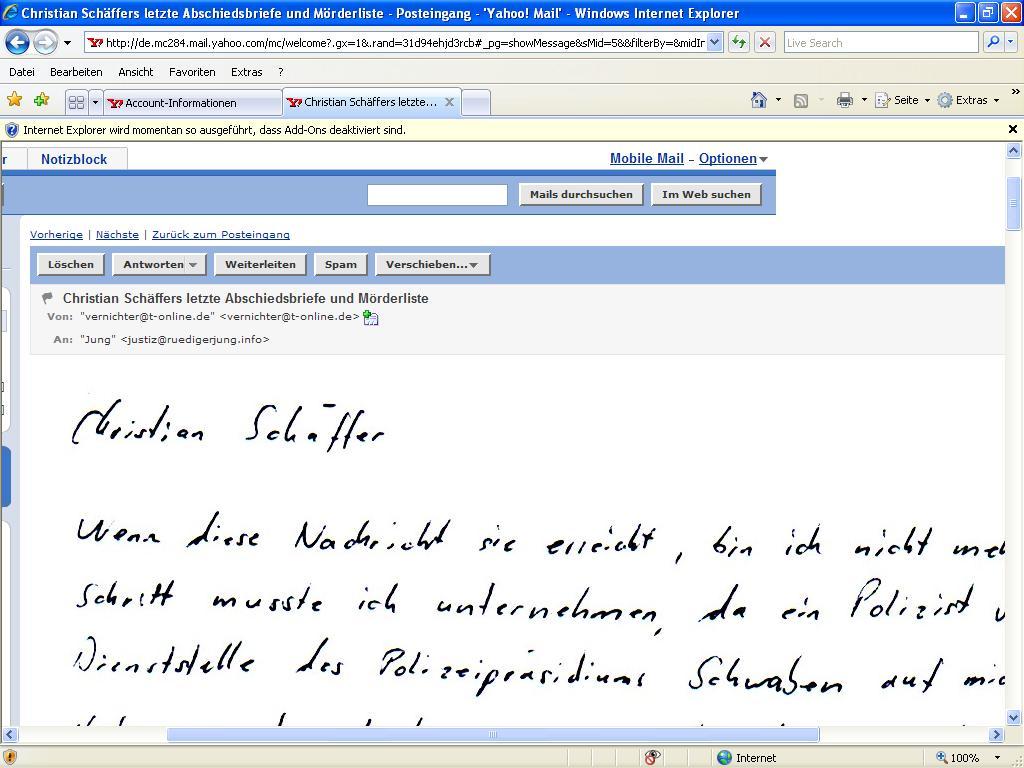 Christian Schäffers letzte Abschiedsbriefe und Mörderliste - Posteingang - 'Yahoo! Mail' - Windows Internet Explorer
http://de.mc284.mail.yahoo.com/mc/welcome?.gx=1&.rand=31d94ehjd3rcb#_pg=showMessage&sMid=5&&filterBy=&midIr
Live Search
Datei Bearbeiten Ansicht Favoriten Extras ?
Account-Informationen Christian Schäffers letzte... Seite Extras
Internet Explorer wird momentan so ausgeführt, dass Add-Ons deaktiviert sind.
r Notizblock Mobile Mail - Optionen
Mails durchsuchen Im Web suchen
Vorherige | Nächste | Zurück zum Posteingang
Löschen Antworten Weiterleiten Spam Verschieben...
Christian Schäffers letzte Abschiedsbriefe und Mörderliste
Von: "vernichter@t-online.de" <vernichter@t-online.de>
An: "Jung" <justiz@ruedigerjung.info>
Christian Schäffer
Wenn diese Nachricht sie erreicht, bin ich nicht meh
Schritt musste ich unternehmen, da ein Polizist
Dienststelle des Polizeipräsidiums Schwaben auf mic
Internet 100%